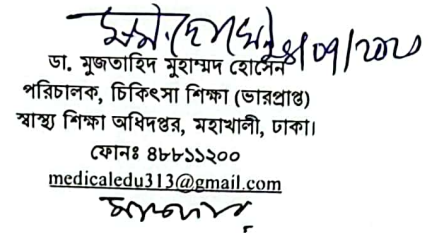 ডা. মুজতাহিদ মুহাম্মদ হোসেন
পরিচালক, চিকিৎসা শিক্ষা (ভারপ্রাপ্ত)
স্বাস্থ্য শিক্ষা অধিদপ্তর, মহাখালী, ঢাকা।
ফোনঃ ৪৮৮১১২০০
medicaledu313@gmail.com